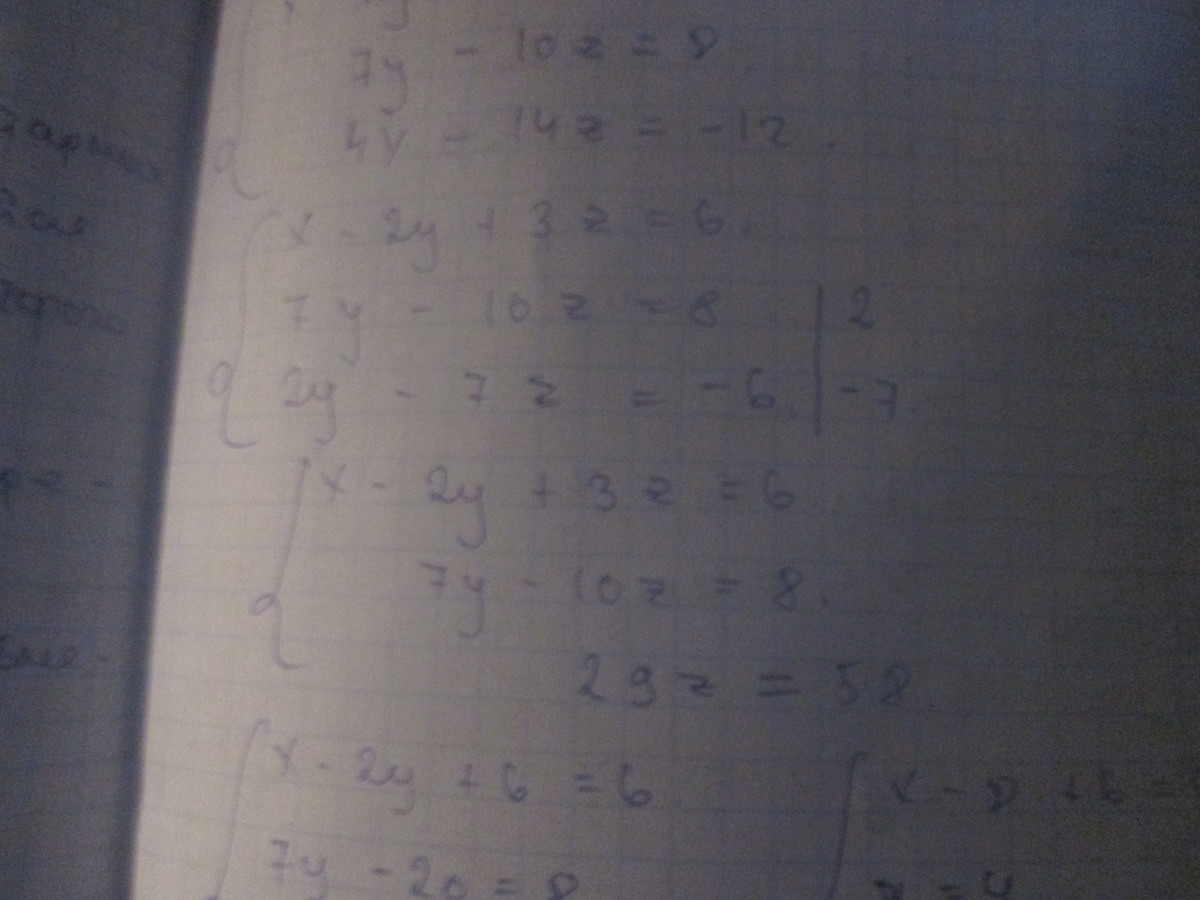 7y - 10z = 8
4y - 14z = -12.
x - 2y + 3z = 6.
7y - 10z = 8 | 2
2y - 7z = -6. | -7.
x - 2y + 3z = 6.
7y - 10z = 8.
29z = 58
x - 2y + 6 = 6
7y - 20 = 8
x - 8 + 6 =
y = 4